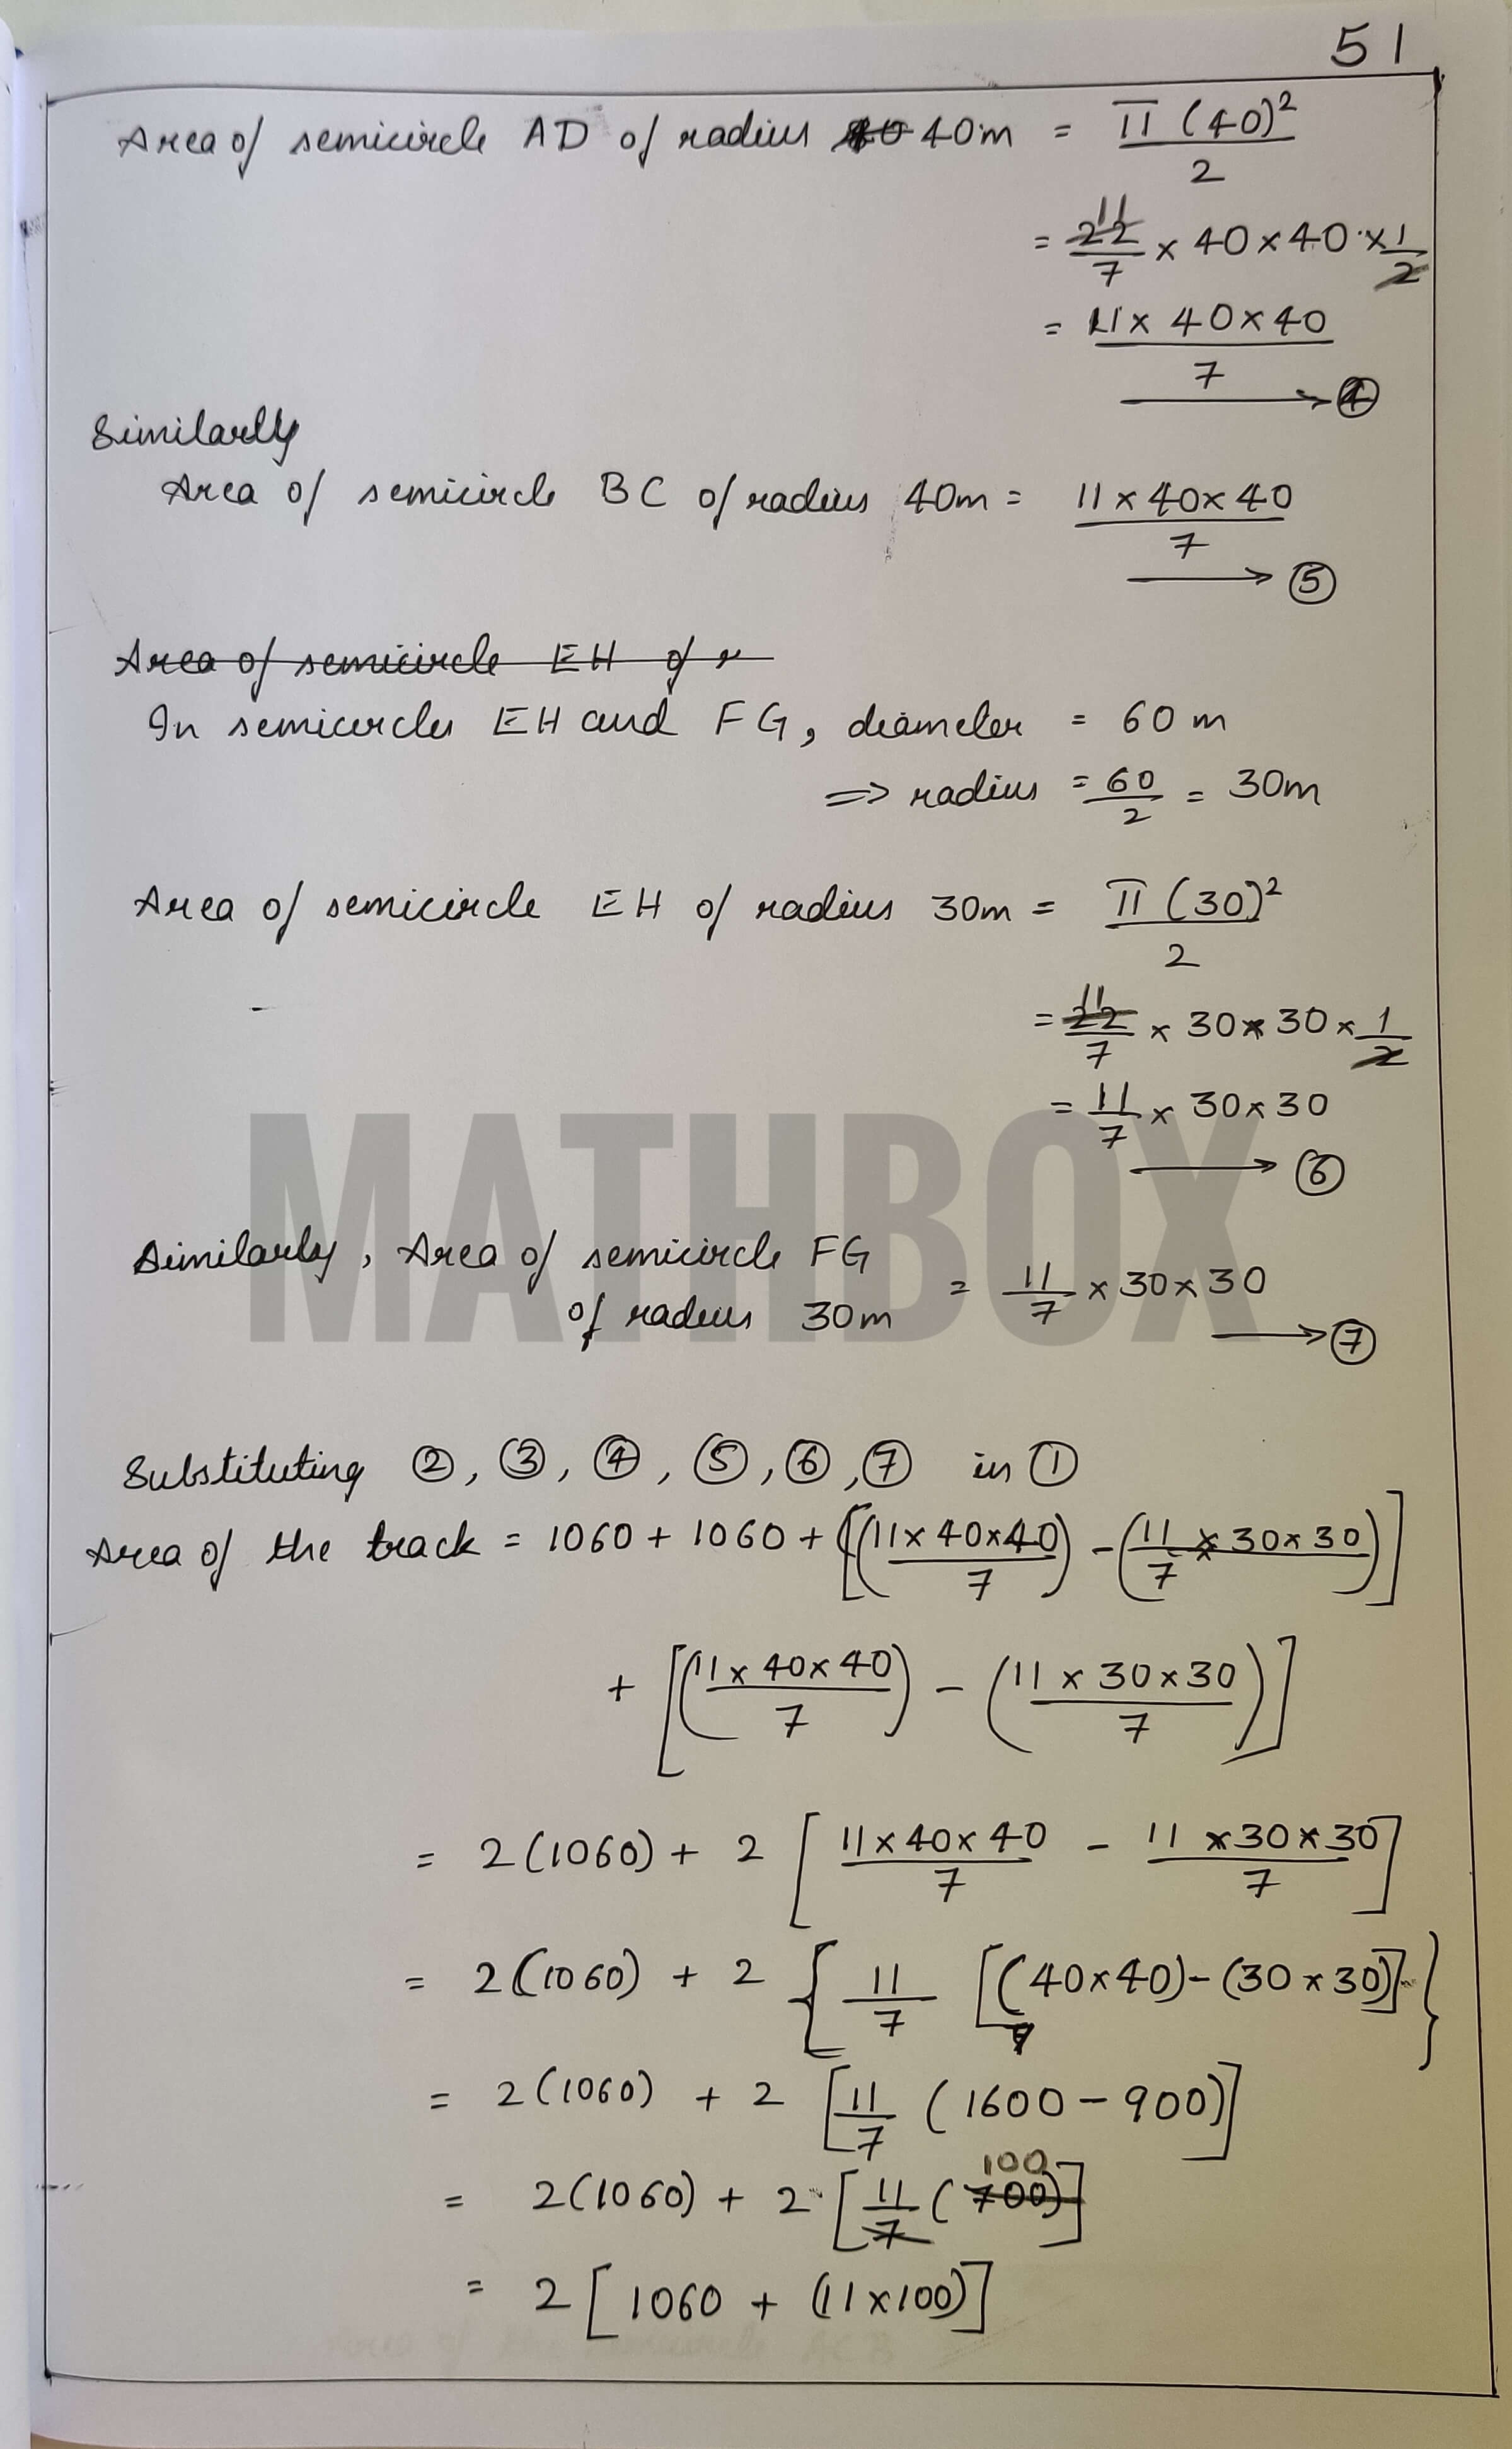 51
Area of semicircle AD of radius 40m = π(40)²/2
= 22/7 × 40 × 40 × 1/2
11
= 11 × 40 × 40/7
→ ④
Similarly
Area of semicircle BC of radius 40m = 11 × 40 × 40/7
→ ⑤
Area of semicircle EH of r
In semicircles EH and FG, diameter = 60 m
⇒ radius = 60/2 = 30m
Area of semicircle EH of radius 30m = π(30)²/2
= 22/7 × 30 × 30 × 1/2
11
= 11/7 × 30 × 30
→ ⑥
MATHBOX
Similarly, Area of semicircle FG
of radius 30m = 11/7 × 30 × 30
→ ⑦
Substituting ②, ③, ④, ⑤, ⑥, ⑦ in ①
Area of the track = 1060 + 1060 + [(11 × 40 × 40/7) - (11/7 × 30 × 30)]
+ [(11 × 40 × 40/7) - (11 × 30 × 30/7)]
= 2(1060) + 2 [11 × 40 × 40/7 - 11 × 30 × 30/7]
= 2(1060) + 2 {11/7 [(40 × 40) - (30 × 30)]}
= 2(1060) + 2 [11/7 (1600 - 900)]
100
= 2(1060) + 2 [11/7 (700)]
= 2 [1060 + (11 × 100)]